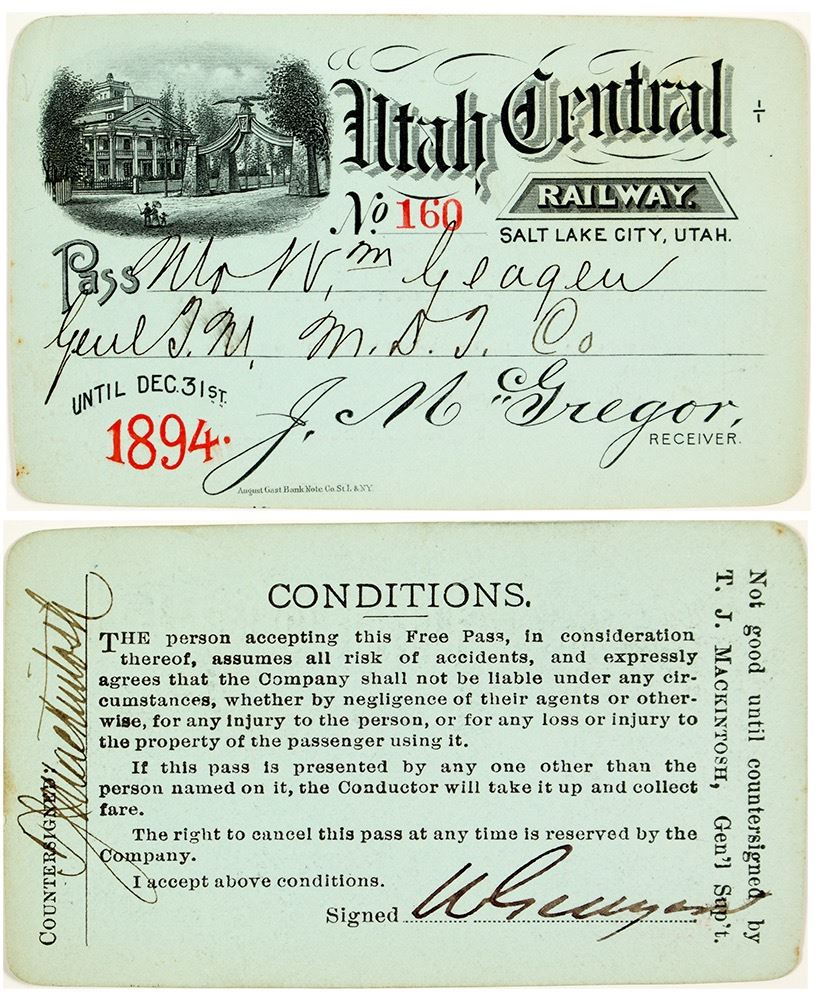 Utah Central
RAILWAY.
SALT LAKE CITY, UTAH.
No 160
Pass Mr Wm Geagen
Genl T. M. M. D. T. Co
UNTIL DEC. 31ST.
1894.
J. McGregor,
RECEIVER.
August Gast Bank Note Co. St. L. & N.Y.
CONDITIONS.
THE person accepting this Free Pass, in consideration
thereof, assumes all risk of accidents, and expressly
agrees that the Company shall not be liable under any cir-
cumstances, whether by negligence of their agents or other-
wise, for any injury to the person, or for any loss or injury to
the property of the passenger using it.
If this pass is presented by any one other than the
person named on it, the Conductor will take it up and collect
fare.
The right to cancel this pass at any time is reserved by the
Company.
I accept above conditions.
Signed
COUNTERSIGNED:
TJMackintosh
Not good until countersigned by
T. J. MACKINTOSH, Gen'l Sup't.